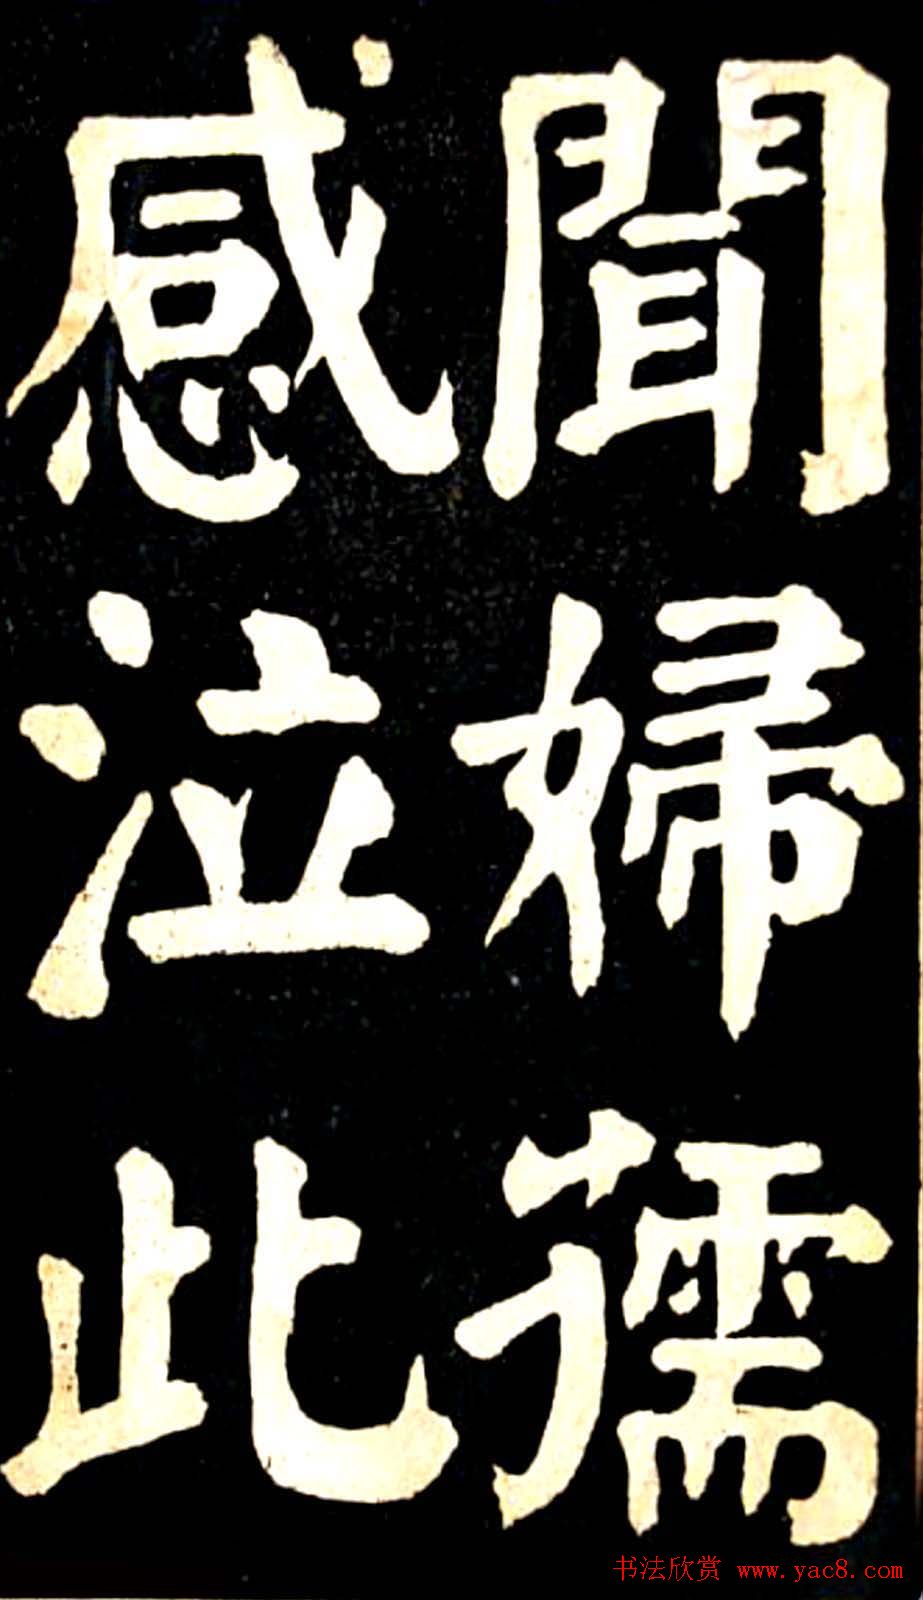 聞婦孺
感泣此
书法欣赏 www.yac8.com